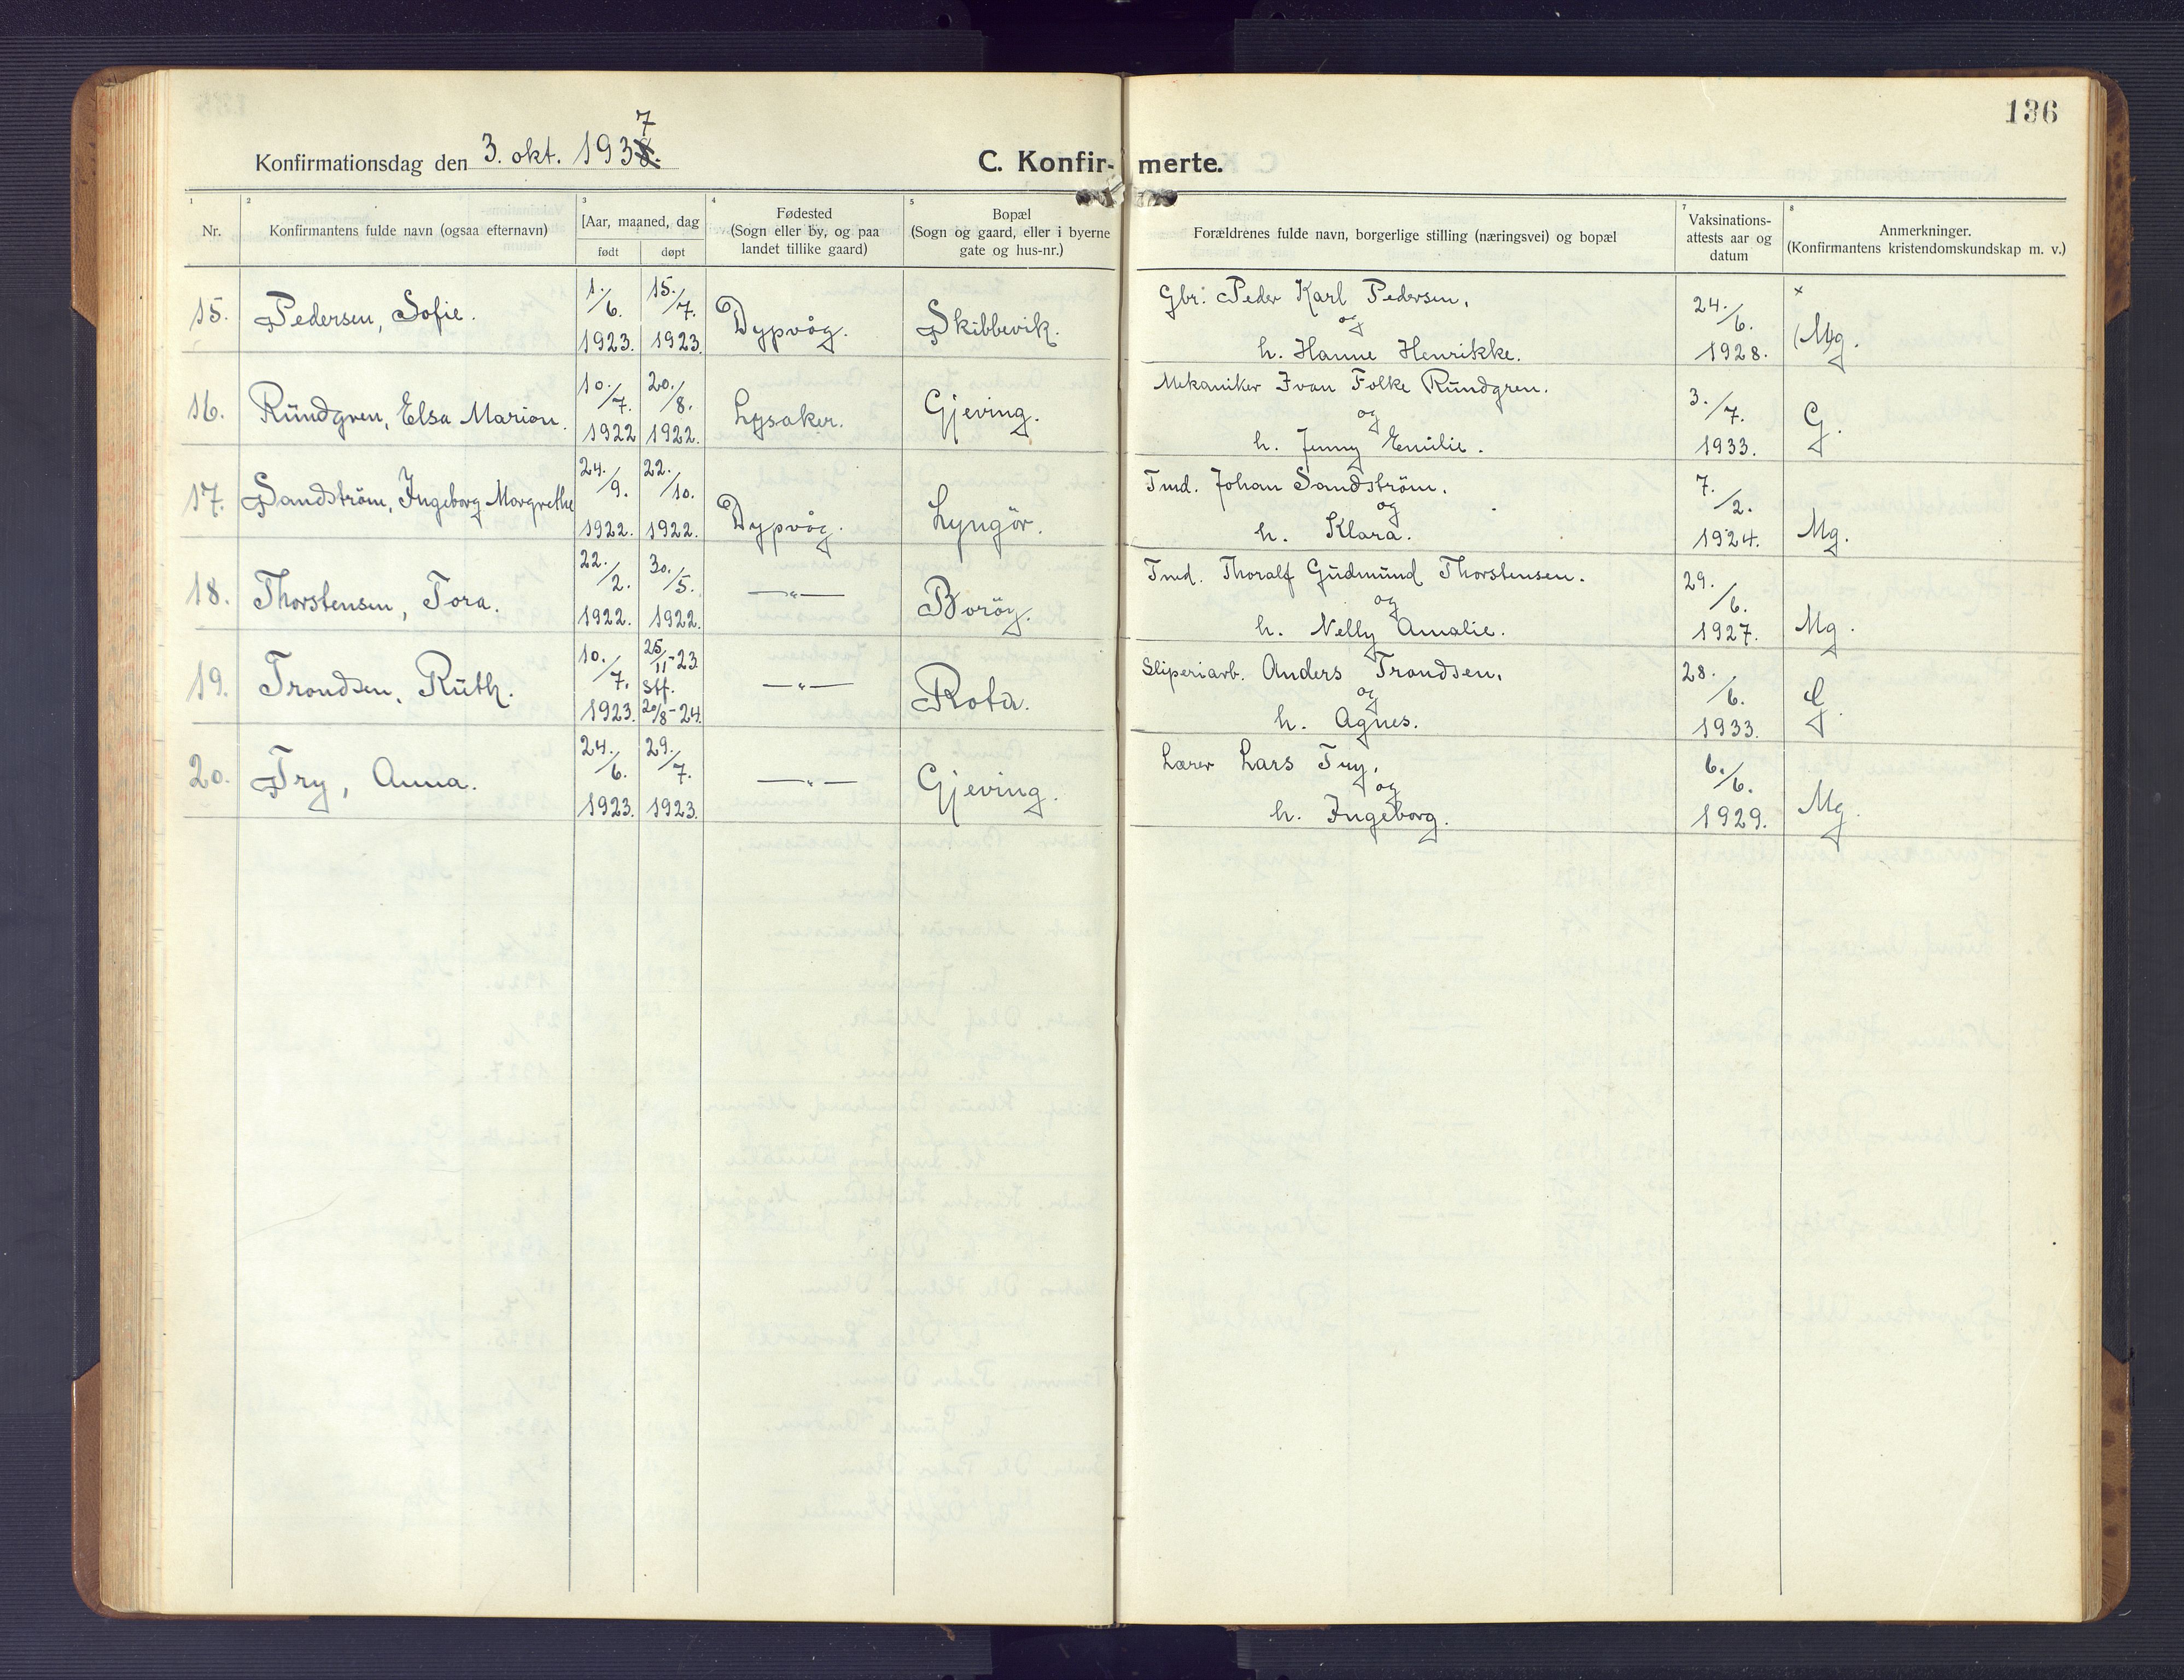 136
Konfirmationsdag den 3. okt. 1937
C. Konfir- merte.
1 2 3 4 5 7 8
Nr.
Konfirmantens fulde navn (ogsaa efternavn)
[Aar, maaned, dag
født døpt
Fødested
(Sogn eller by, og paa
landet tillike gaard)
Bopæl
(Sogn og gaard, eller i byerne
gate og hus-nr.)
Forældrenes fulde navn, borgerlige stilling (næringsvei) og bopæl
Vaksinations-
attests aar og
datum
Anmerkninger.
(Konfirmantens kristendomskundskap m. v.)
15. Pedersen, Sofie. 1./6. 1923. 15./7. 1923. Dypvåg. Skibbevik. Gbr. Peder Karl Pedersen,
og
h. Hanne Henrikke. 24./6. 1928. x (Mg.
16. Rundgren, Elsa Marion. 10./7. 1922 20./8. 1922. Lysaker. Gjeving. Mekaniker Ivan Folke Rundgren.
og
h. Jenny Emilie. 3./7. 1933. G.
17. Sandström, Ingeborg Margrethe 24./9. 1922. 22./10. 1922. Dypvåg. Lyngör. Tmd. Johan Sandström.
og
h. Klara. 7./2. 1924. Mg.
18. Thorstensen, Tora. 22./2. 1922. 30./5. 1922. —"— Boröy. Tmd. Thoralf Gudmund Thorstensen.
og
h. Nelly Amalie. 29./6. 1927. Mg.
19. Trondsen, Ruth. 10./7. 1923. 25/11-23 stf. 20/8-24. —"— Rota. Sliperiarb. Anders Trondsen,
og
h. Agnes. 28./6. 1933. G.
20. Try, Anna. 24./6. 1923. 29./7. 1923. —"— Gjeving. Lærer Lars Try,
og
h. Ingeborg. 6./6. 1929. Mg.